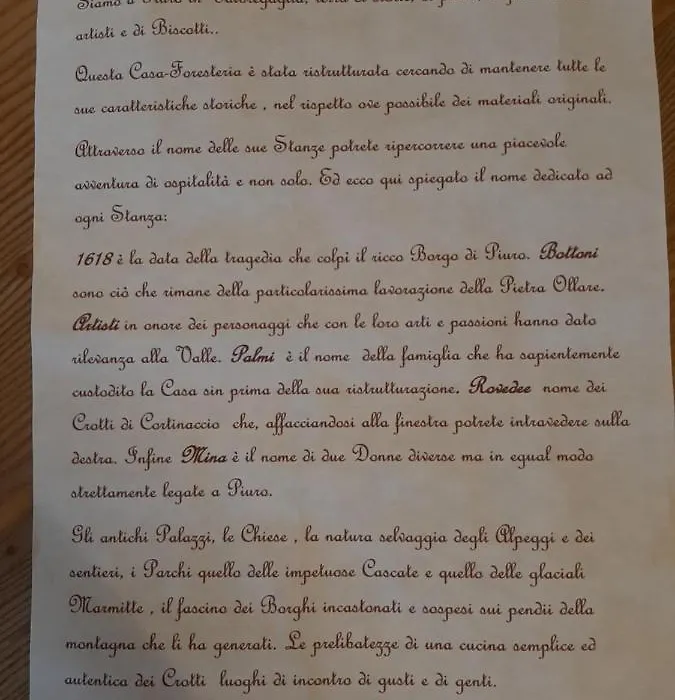 Siamo a Piuro in
artisti e di Biscotti..
Questa Casa-Foresteria è stata ristrutturata cercando di mantenere tutte le
sue caratteristiche storiche , nel rispetto ove possibile dei materiali originali.
Attraverso il nome delle sue Stanze potrete ripercorrere una piacevole
avventura di ospitalità e non solo. Ed ecco qui spiegato il nome dedicato ad
ogni Stanza:
1618 è la data della tragedia che colpì il ricco Borgo di Piuro. Bottoni
sono ciò che rimane della particolarissima lavorazione della Pietra Ollare.
Artisti in onore dei personaggi che con le loro arti e passioni hanno dato
rilevanza alla Valle. Palmi è il nome della famiglia che ha sapientemente
custodito la Casa sin prima della sua ristrutturazione. Rovedee nome dei
Crotti di Cortinaccio che, affacciandosi alla finestra potrete intravedere sulla
destra. Infine Mina è il nome di due Donne diverse ma in egual modo
strettamente legate a Piuro.
Gli antichi Palazzi, le Chiese , la natura selvaggia degli Alpeggi e dei
sentieri, i Parchi quello delle impetuose Cascate e quello delle glaciali
Marmitte , il fascino dei Borghi incastonati e sospesi sui pendii della
montagna che li ha generati. Le prelibatezze di una cucina semplice ed
autentica dei Crotti luoghi di incontro di gusti e di genti.